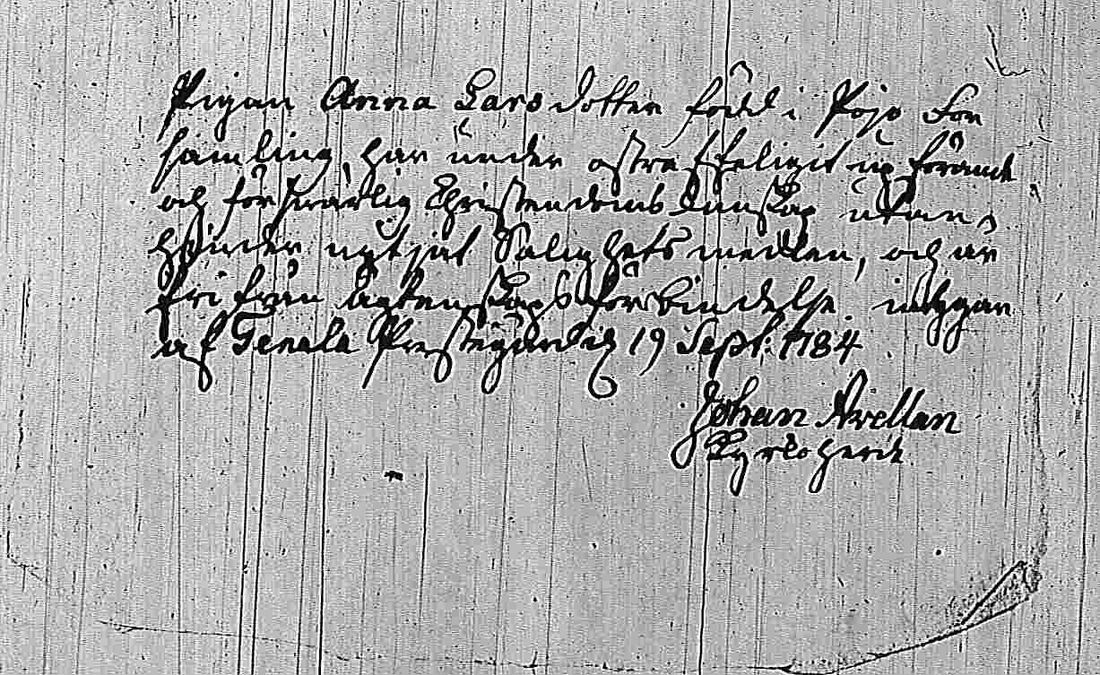 Pigan Anna Larsdotter född i Pojo För
samling, har under ostraffeligit upförande
och försvarlig Christendoms kunskap utan
hinder nyttjat Salighets medlen, och är
fri från ägtenskaps förbindelse
af Tenala Prestegård d. 19 Sept: 1784
Johan Avellan
Kyrkoherde